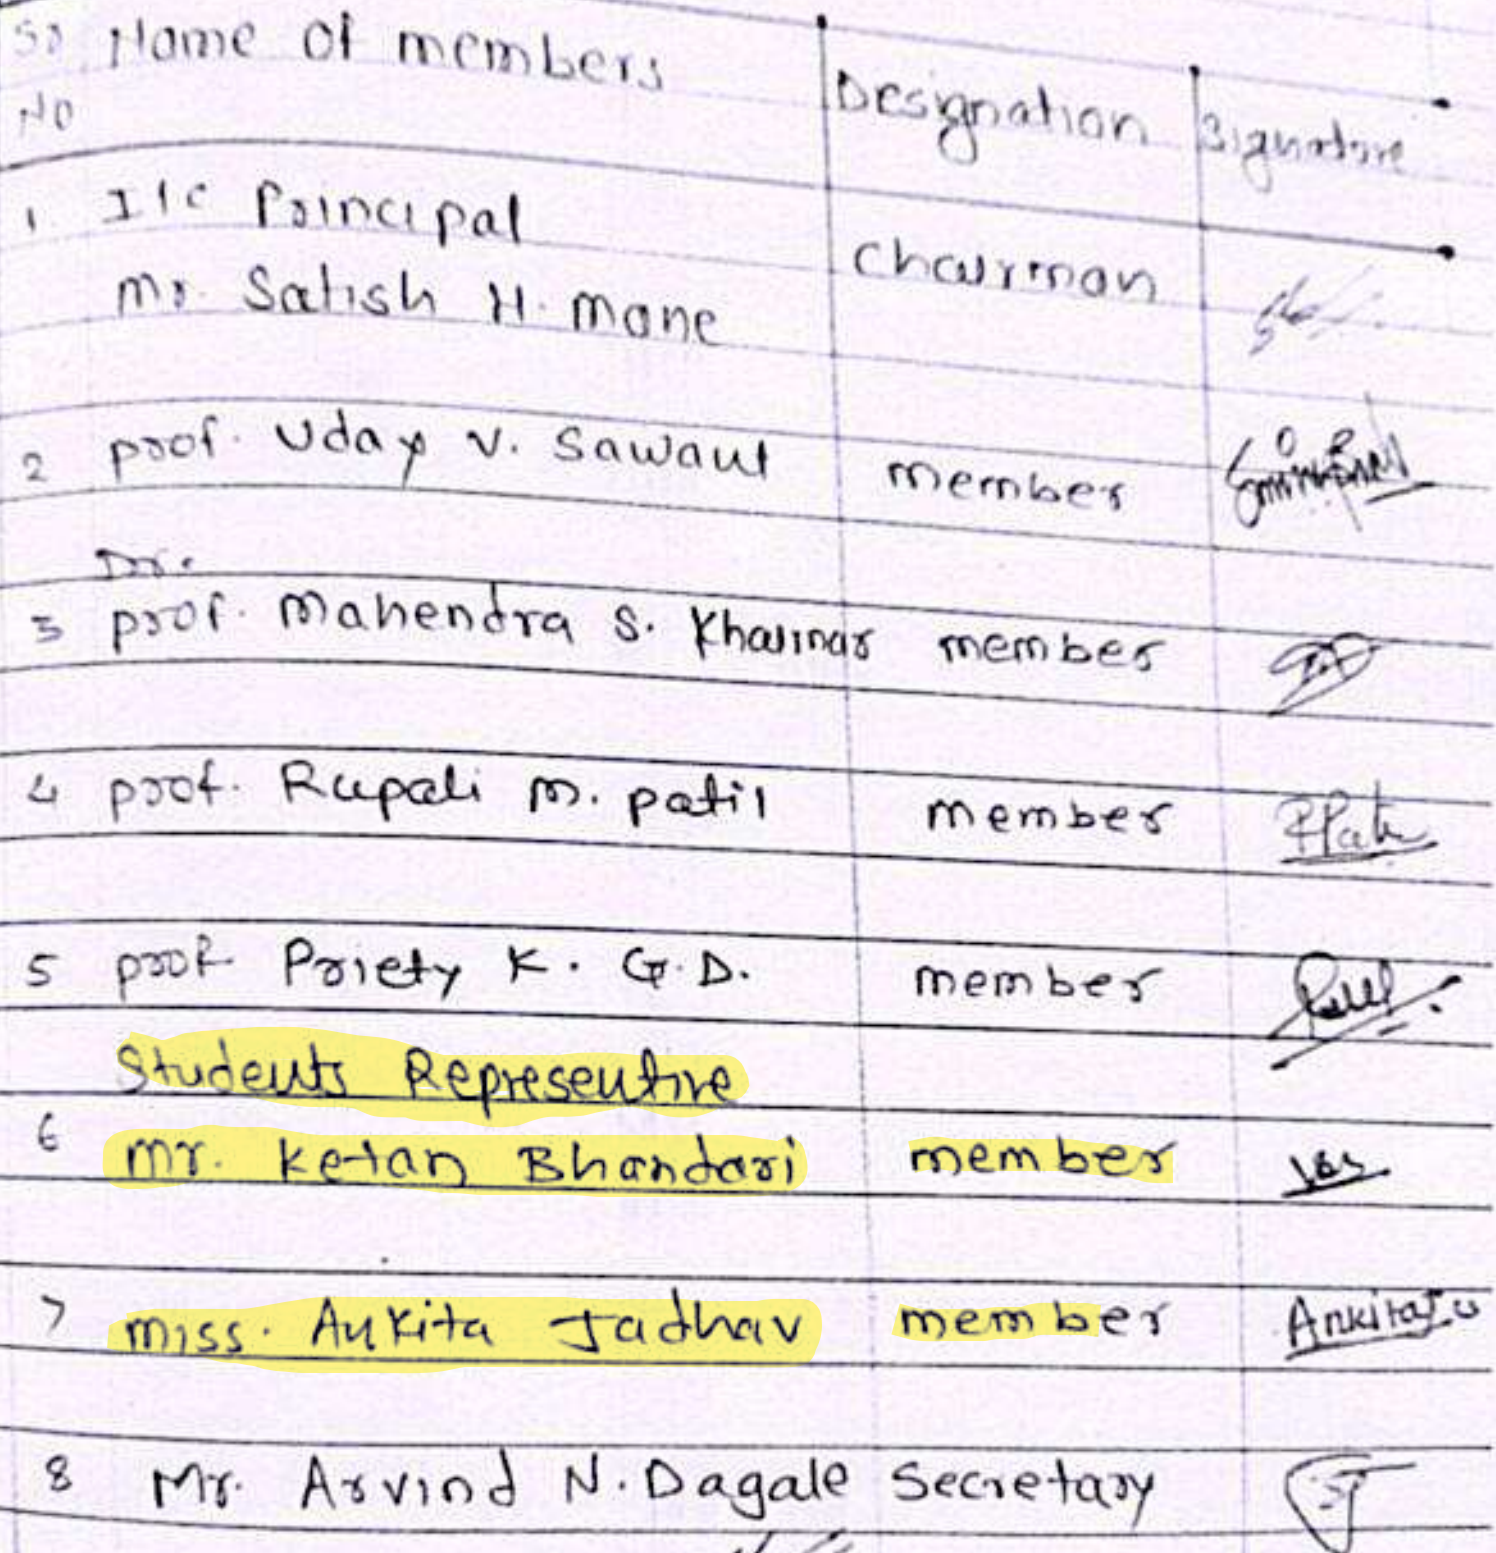 Sr Name of members Designation Signature
No
1 I/c Principal
Mr. Satish H. Mane Chairman
2 prof. Uday V. Sawant member
Dr.
3 prof. Mahendra S. Khairnar member
4 prof. Rupali M. patil member RPatil
5 prof Priety K. G.D. member
Students Representive
6 mr. Ketan Bhandari member
7 miss. Ankita Jadhav member Ankita
8 Mr. Arvind N. Dagale Secretary